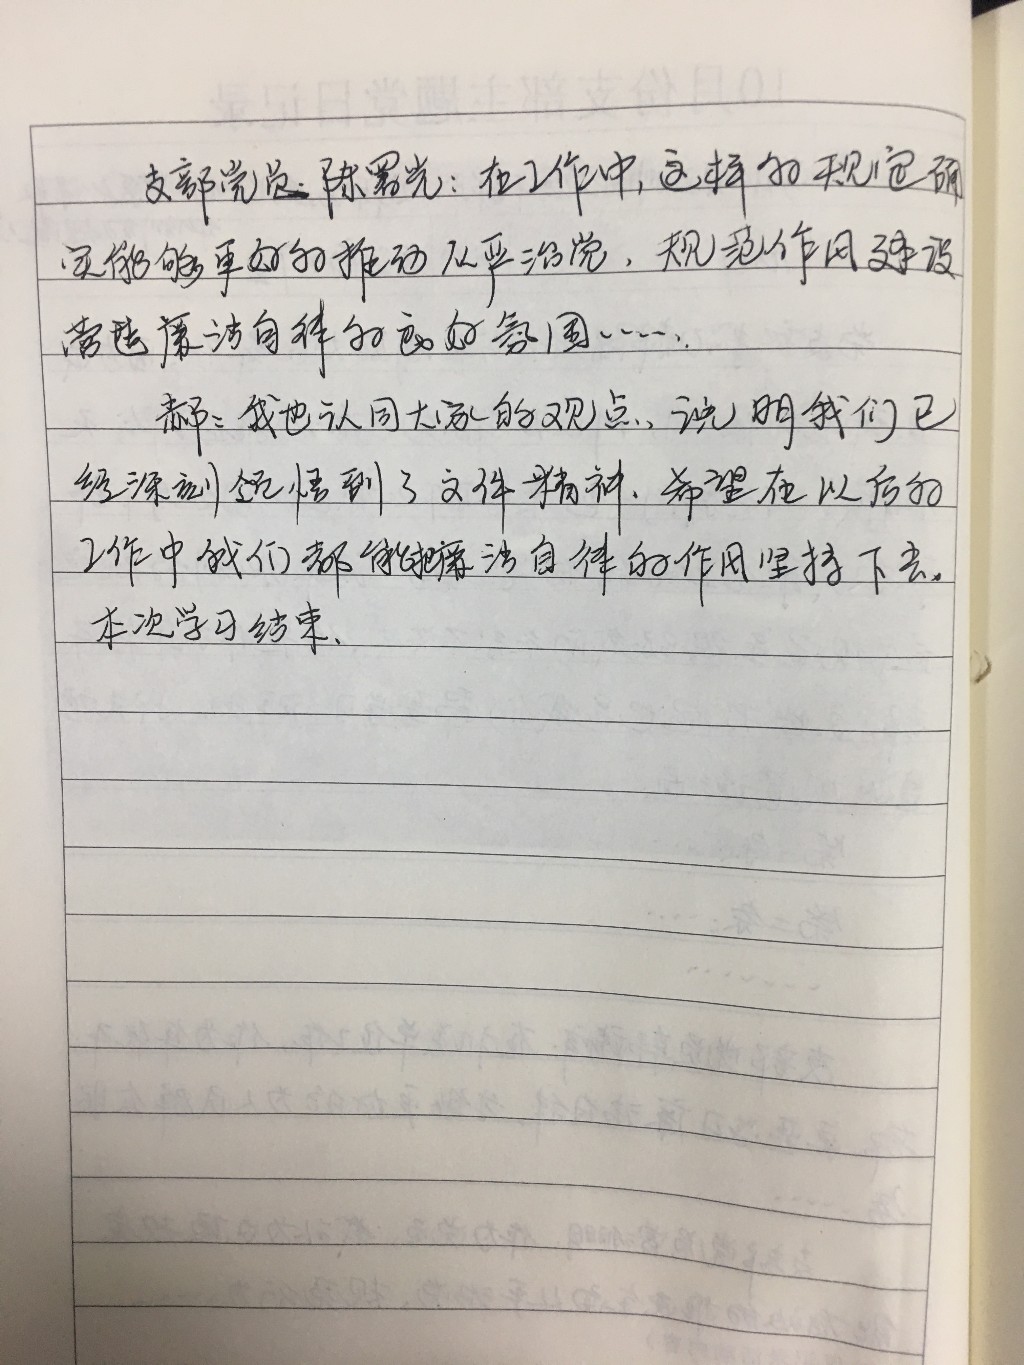 支部党员:陈署光:在工作中,这样的规定确
实能够更好的推动从严治党,规范作风建设
营造廉洁自律的良好氛围……
郝:我也认同大家的观点,说明我们已
经深刻领悟到了文件精神,希望在以后的
工作中我们都能把廉洁自律的作风坚持下去。
本次学习结束。